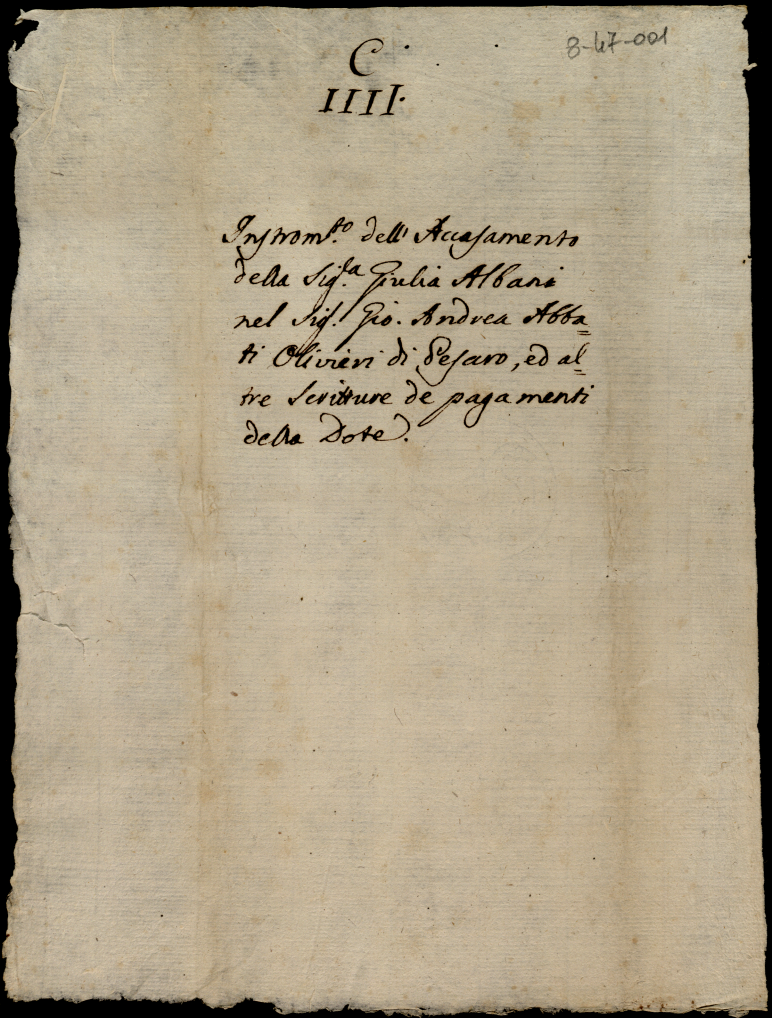 C
IIII.
3-47-001
Instrom.to dell' Accasamento
della Sig.la Giulia Albani
nel Sig. Gio. Andrea Abba=
ti Olivieri di Pesaro, ed al=
tre Scritture de pagamenti
della Dote.